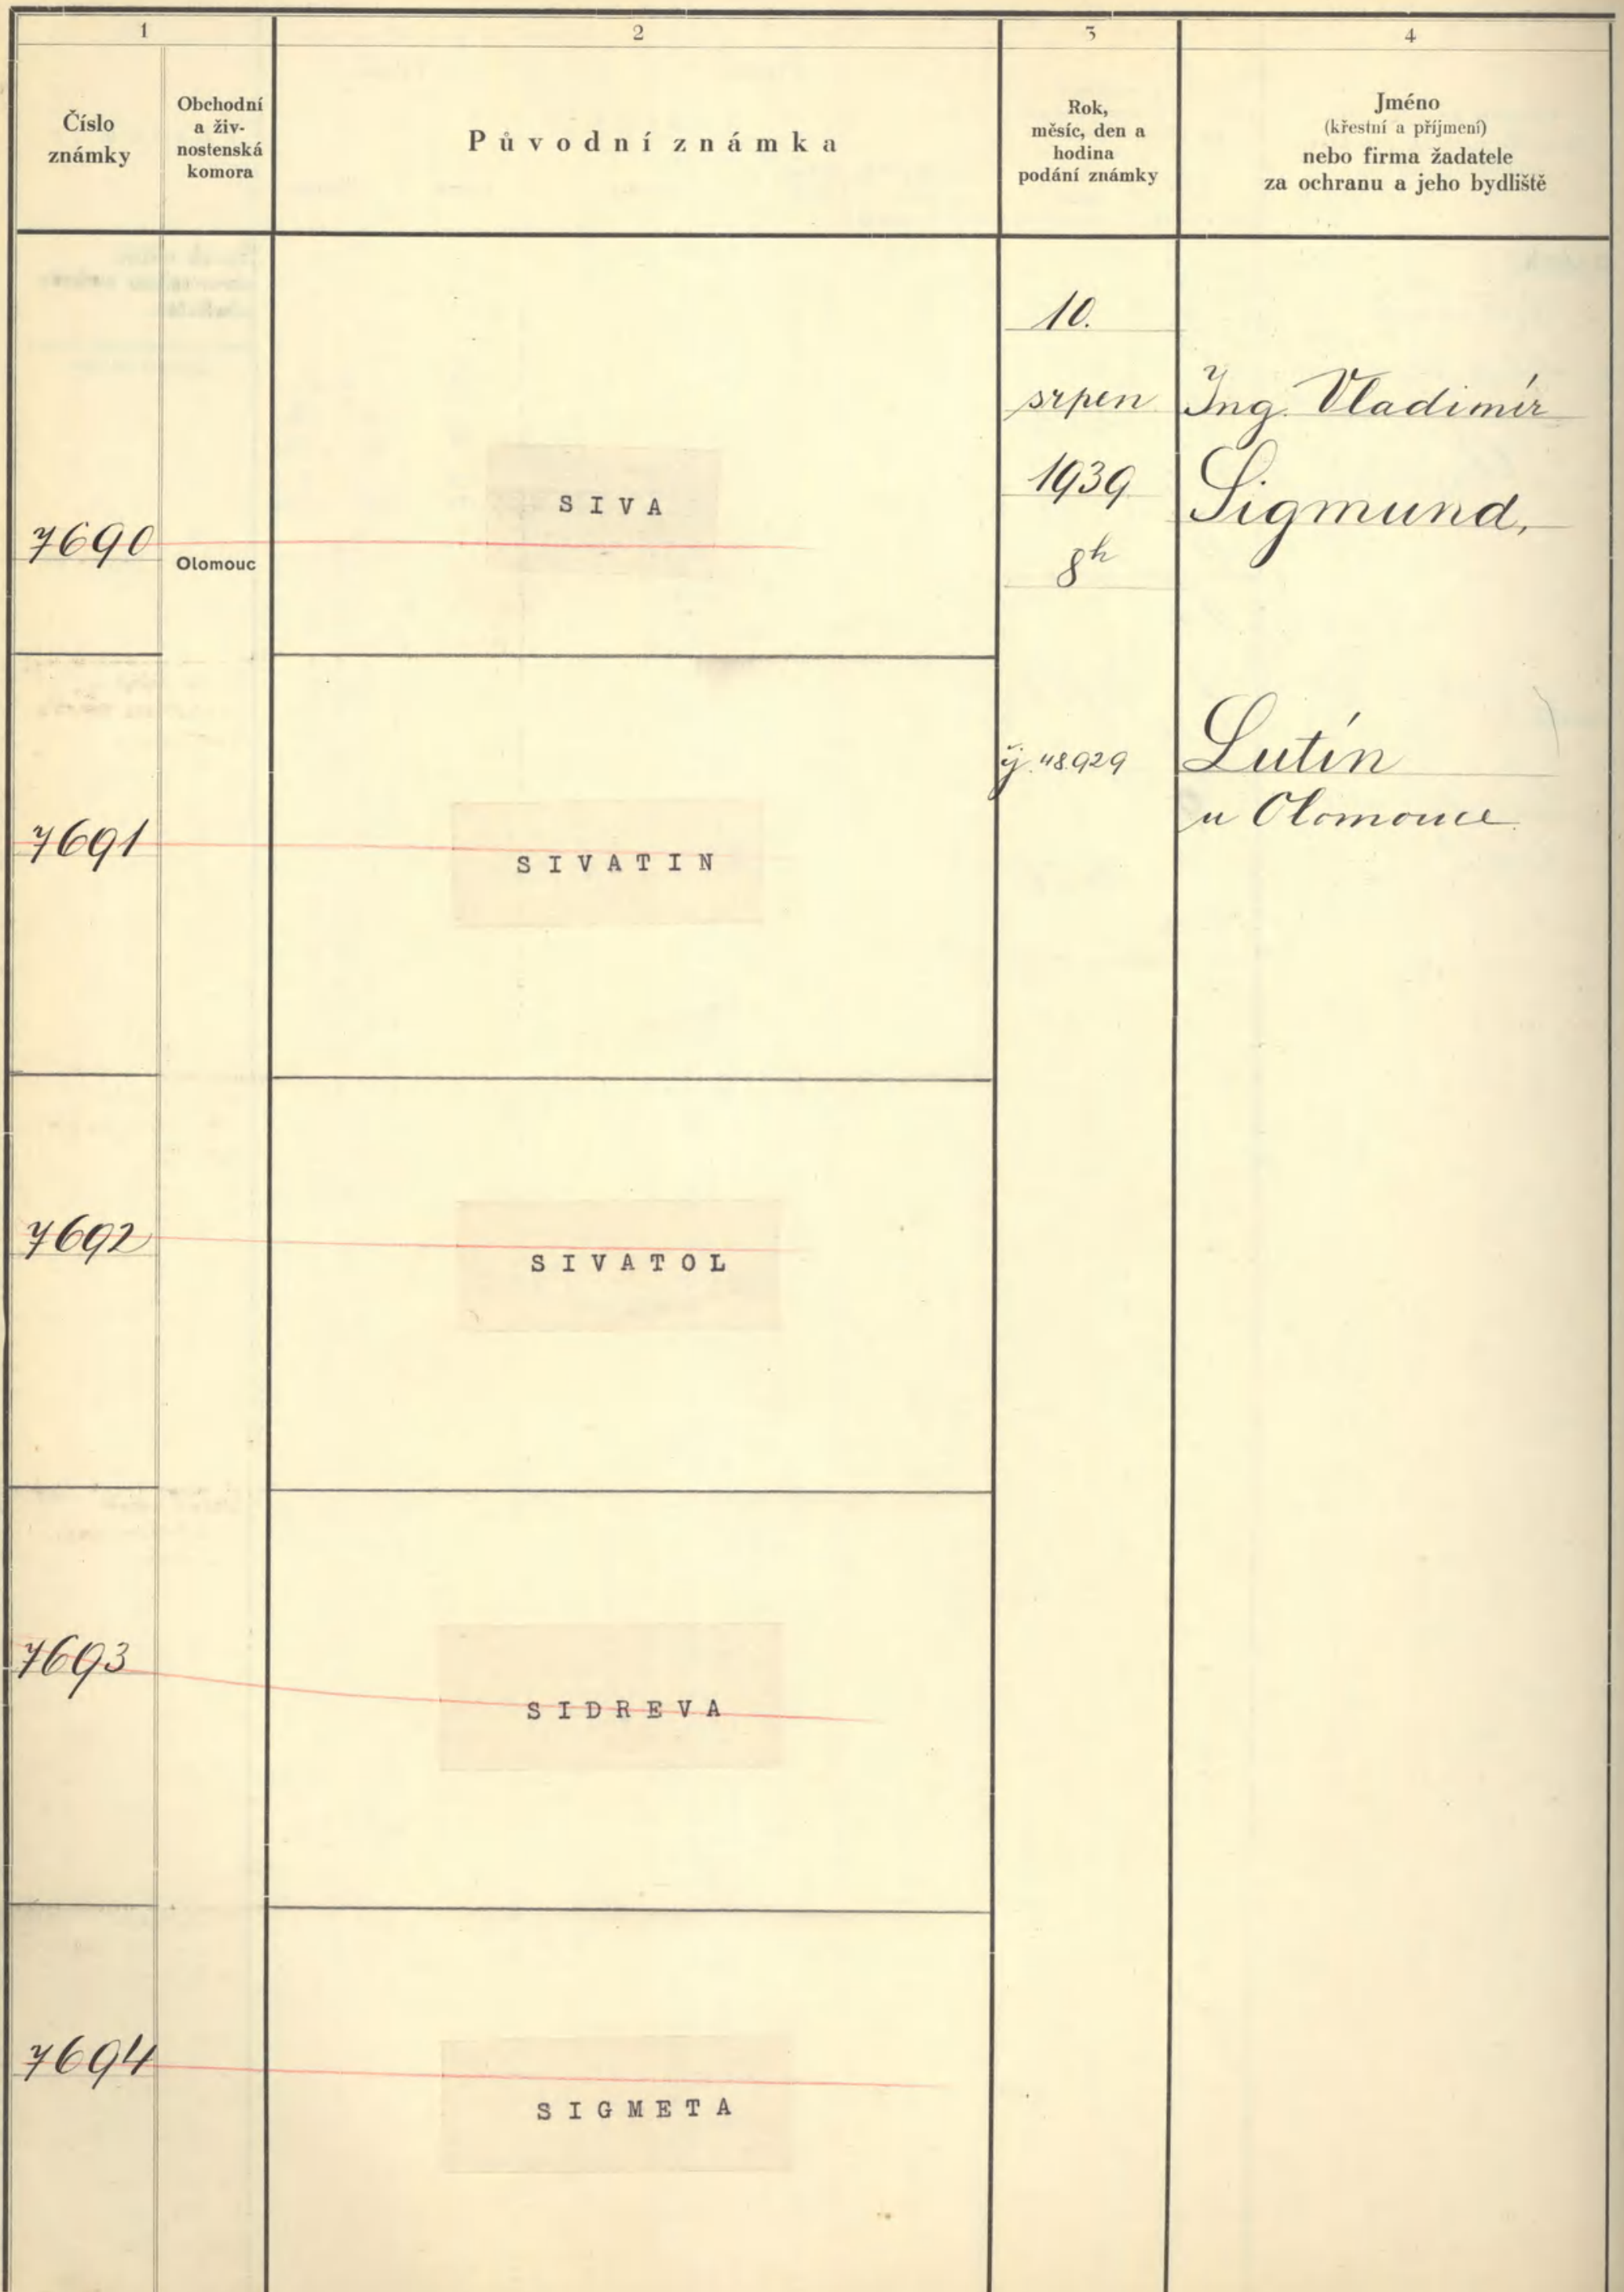 1
2
3
4
Číslo
známky
Obchodní
a živ-
nostenská
komora
Původní známka
Rok,
měsíc, den a
hodina
podání známky
Jméno
(křestní a příjmení)
nebo firma žadatele
za ochranu a jeho bydliště
7690
Olomouc
SIVA
10.
srpen
1939
8h
Ing. Vladimír
Sigmund,
Lutín
u Olomouce
čj. 48.929
7691
SIVATIN
7692
SIVATOL
7693
SIDREVA
7694
SIGMETA